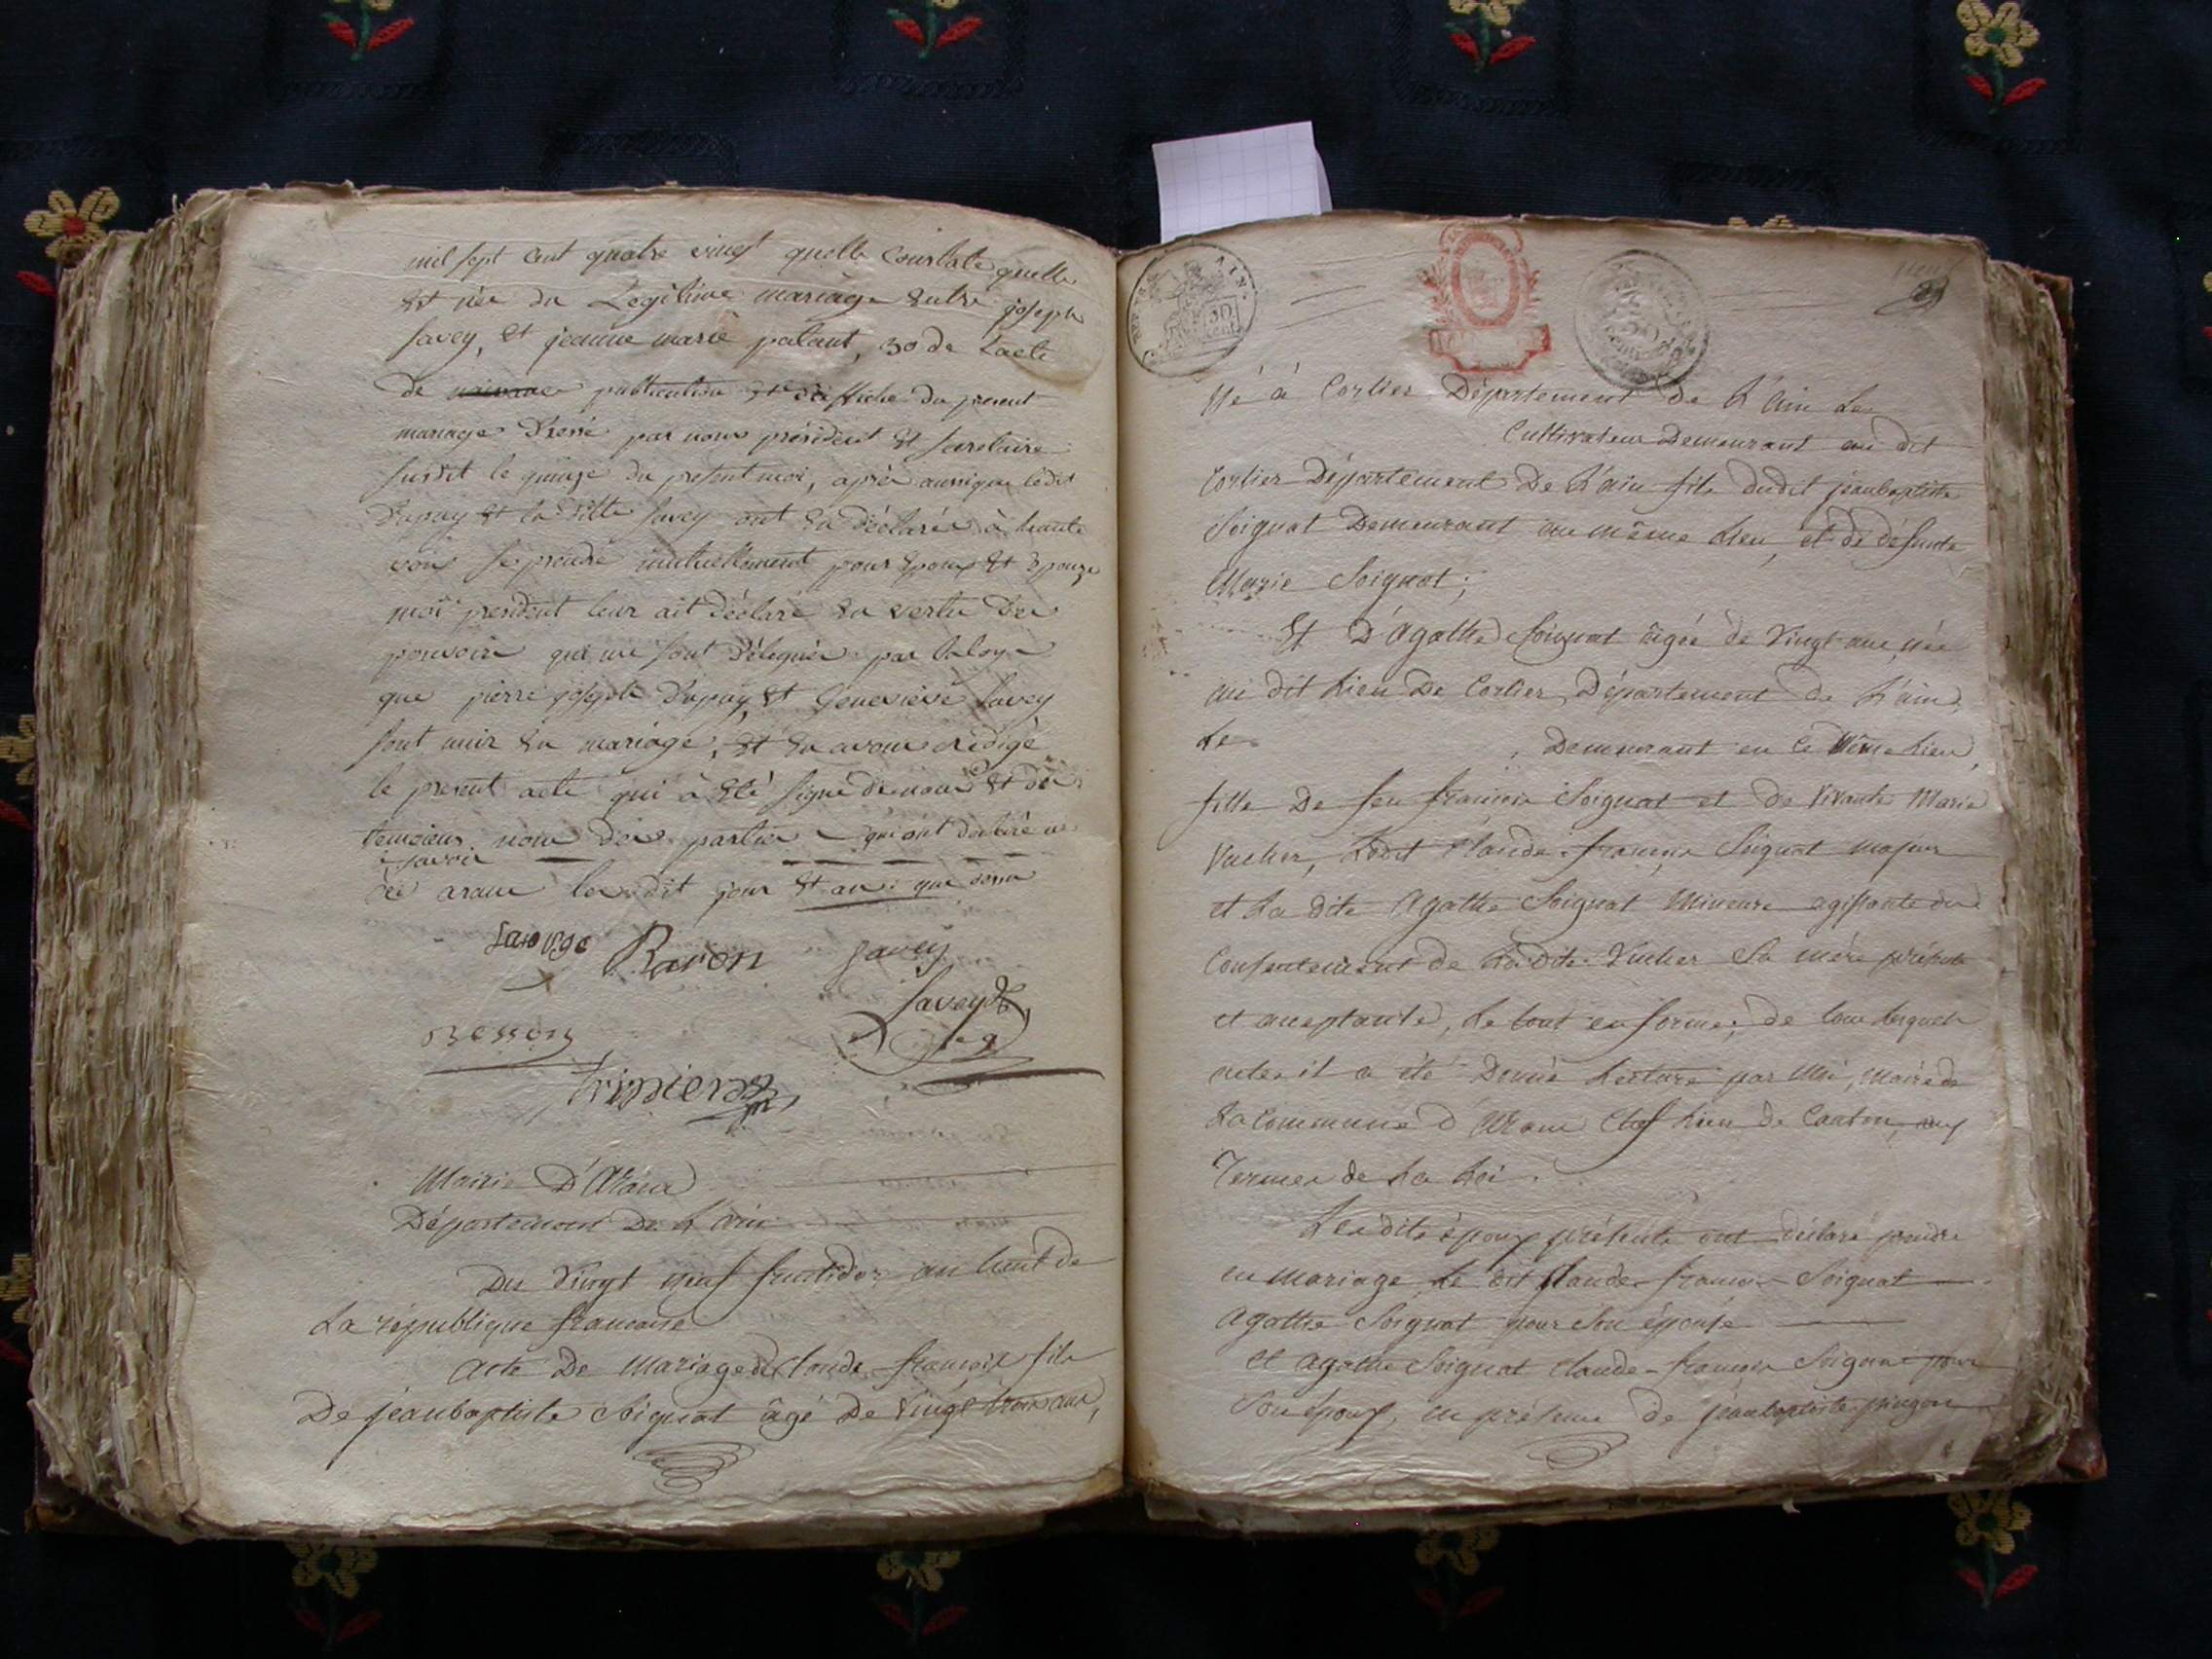 mil sept cent quatre vingt quelle constate quelle
Et née du Legitime mariage Entre joseph
Savey, Et jeanne marie palant, 3o de L'acte
de naissance publication Et d'affiche du present
mariage dressé par nous président Et secretaire
susdit le quinze du present moi, après aussi que ledit
Dupuy Et la ditte Savey ont Eu déclaré à haute
voix se prendre mutuellement pour Epoux Et Epouze
moi president leur ait déclaré En vertu des
pouvoirs qui me sont délegués par la loy
que pierre joseph Dupuy Et Genevieve Savey
sont unir En mariage, Et En avons redigé
le present acte qui à Eté signé de nous Et des
temoins non des parties qui ont declaré ne
savoir
à aranc les dit jour Et an que dessus
Baron Savey
Savey
Mairie D'Aranc
Département De L'Ain
Du Vingt neuf fructidor an huit de
La république francaise
Acte De Mariage de Claude françois fils
De jean baptiste Soignat âgé De Vingt trois ans,
50
Né à Corlier Département De L'ain Le
Cultivateur Demeurant au dit
Corlier Département De L'ain fils dudit jean baptiste
Soignat Demeurant au même Lieu, et de défunte
Marie Soignat;
Et D'Agathe Soignat âgée de Vingt ans, née
au dit Lieu De Corlier Département de L'ain,
Le Demeurant en Ce Même Lieu,
fille De feu françois Soignat et de Vivante Marie
Vucher, Ledit Claude françois Soignat majeur
et La dite Agathe Soignat Mineure agissante du
Consentement de Ladite Vucher Sa mère présente
et acceptante, Le tout en forme; de tous Lesquels
actes il a été Donné Lecture par Moi, Maire de
La Commune d'Aranc Chef Lieu de Canton, aux
Termes de La Loi.
Lesdits époux présents ont déclaré prendre
en mariage Le dit Claude françois Soignat
Agathe Soignat pour Son épouse
et Agathe Soignat Claude-françois Soignat pour
Son époux, en présence de jean baptiste